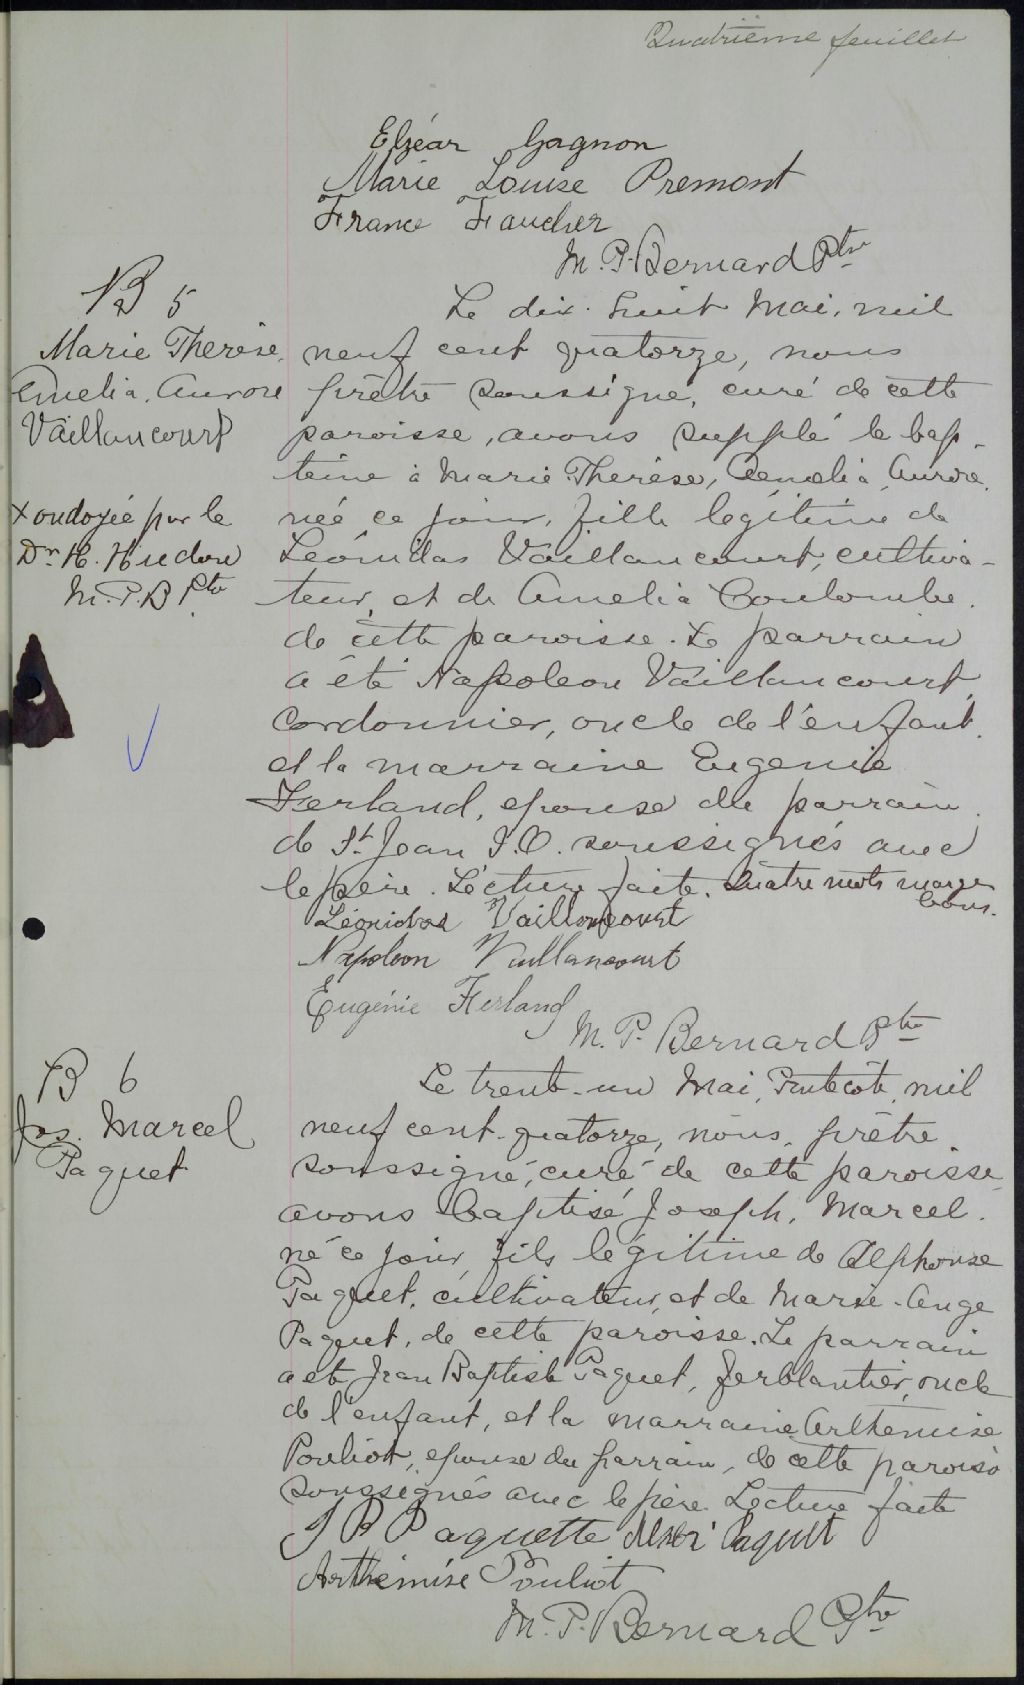 Quatrième feuillet
Elzéar Gagnon
Marie Louise Premont
France Faucher
M. P. Bernard Ptre
B 5
Marie Therèse,
Amelia, Aurore
Vaillancourt
x ondoyée par le
Dr. H. Hudon
M. P. B Ptre
Le dix-huit Mai, mil
neuf cent quatorze, nous
prêtre soussigné, curé de cette
paroisse, avons supplé le bap-
tême à Marie Therèse, Amelia, Aurore,
née ce jour, fille légitime de
Léonidas Vaillancourt, cultiva-
teur, et de Amelia Coulombe.
de cette paroisse. Le parrain
a été Napoleon Vaillancourt,
Cordonnier, oncle de l'enfant,
et la marraine Eugenie
Ferland, epouse du parrain
de St Jean I.O. soussignés avec
le père. Lecture faite. Quatre mots marge
bons.
Léonidas Vaillancourt
Napoleon Vaillancourt
Eugénie Ferland
M. P. Bernard Ptre
B 6
Jos. Marcel
Paquet
Le trente-un Mai, Pentecôte, mil
neuf cent-quatorze, nous, prêtre
soussigné, curé de cette paroisse,
avons baptisé Joseph, Marcel.
né ce jour, fils légitime de Alphonse
Paquet, cultivateur, et de Marie-Ange
Paquet, de cette paroisse. Le parrain
a été Jean Baptiste Paquet, ferblantier, oncle
de l'enfant, et la marraine Arthemise
Pouliot, epouse du parrain, de cette paroisse
soussignés avec le père. Lecture faite
J B Paquette Paquet
Arthémise Pouliot
M. P. Bernard Ptre